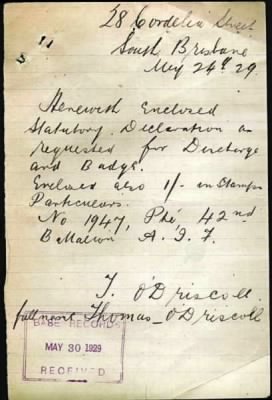 28 Cordelia Street
South Brisbane
May 24th 29.
Herewith Enclosed
Statutory Declaration as
requested for Discharge
and Badge.
Enclosed also 1/- in Stamps
Particulars.
No 1947, Pte, 42nd
Battalion A. I. F.
T. O'Driscoll.
full name Thomas O'Driscoll
BASE RECORDS
MAY 30 1929
RECEIVED